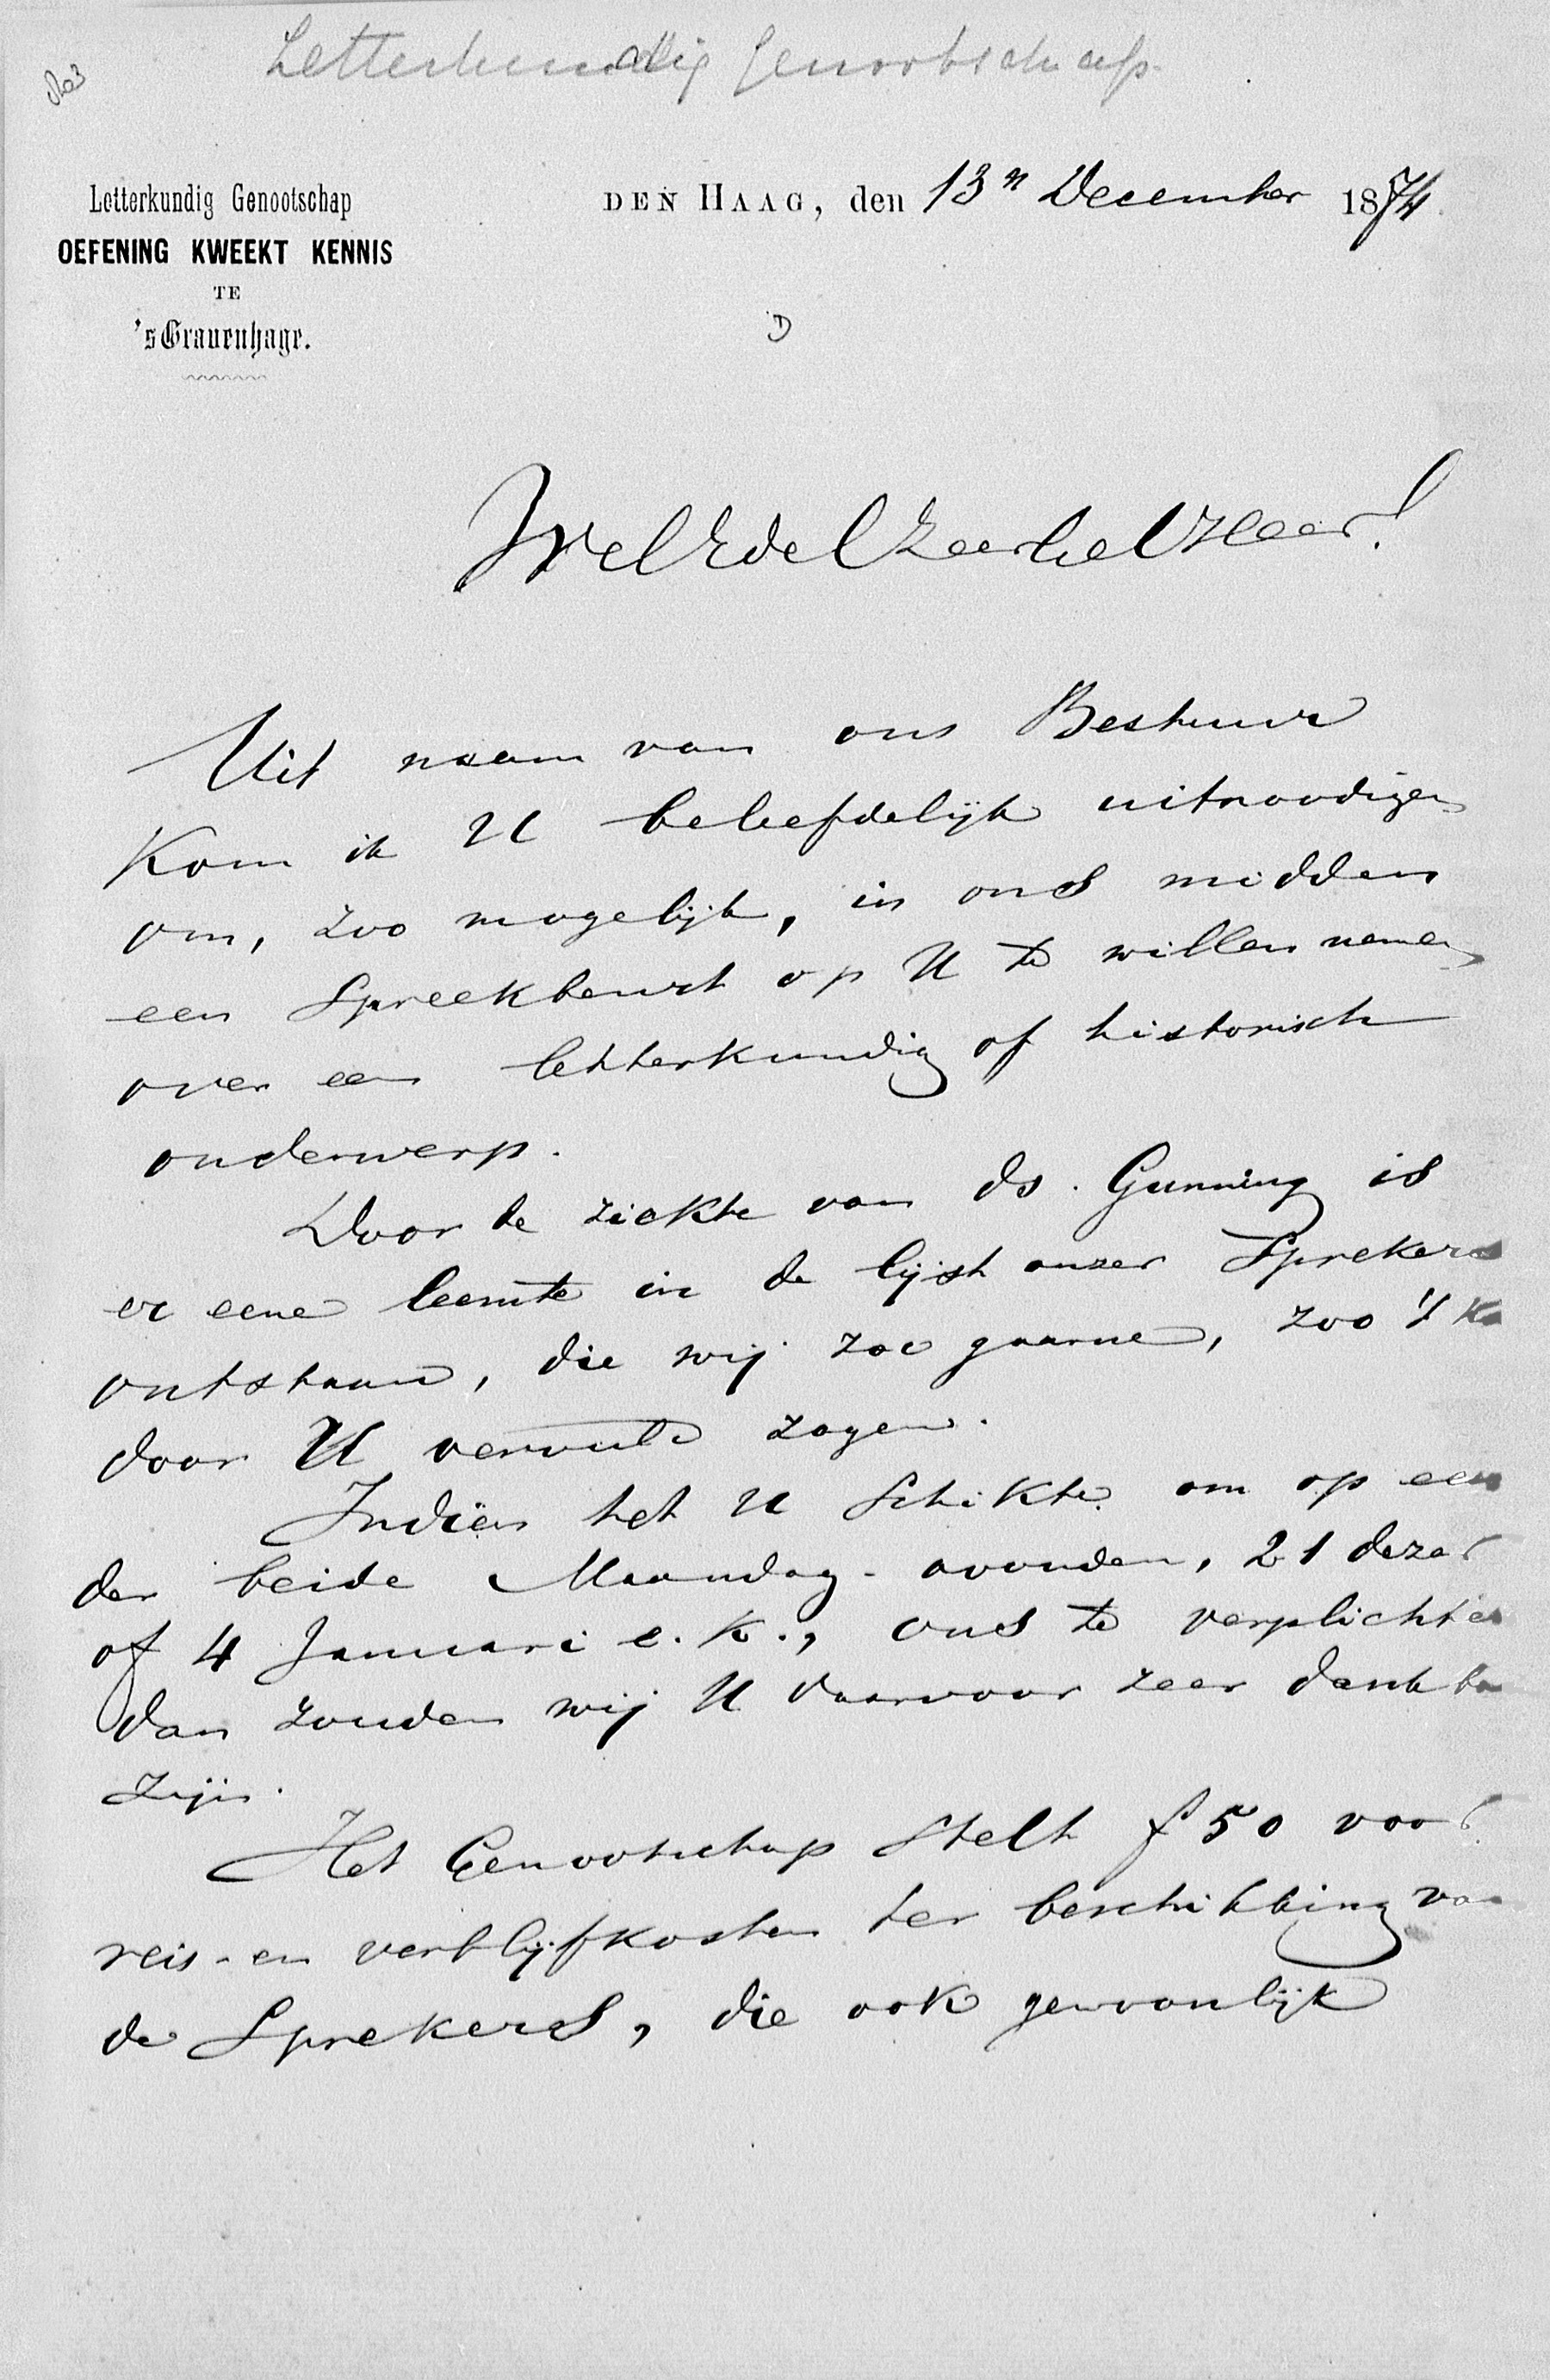 Letterkundig Genootschap
Letterkundig Genootschap
OEFENING KWEEKT KENNIS
TE
'sGravenhage.
DEN HAAG, den 13n December 1874.
WelEdelZeerGel Heer!
Uit naam van ons Bestuur
kom ik U beleefdelijk uitnoodigen
om, zoo mogelijk, in ons midden
een Spreekbeurt op U te willen nemen
over een letterkundig of historisch
onderwerp.
Door de ziekte van ds. Gunning is
er eene leemte in de lijst onzer Sprekers
ontstaan, die wij zoo gaarne, zoo 't ka
door U vervuld zagen.
Indien het U schikte om op een
der beide Maandag-avonden, 21 dezer
of 4 Januari e.k., ons te verplichten
dan zouden wij U daarvoor zeer dankba
zijn.
Het Genootschap stelt f 50 voor
reis- en verblijfkosten ter beschikking van
de Sprekers, die ook gewoonlijk